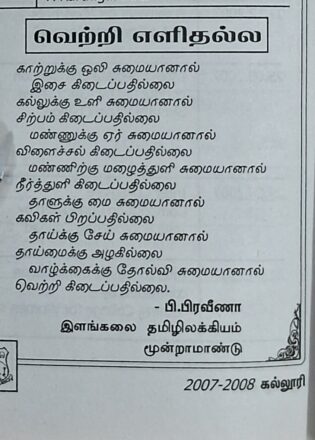 வெற்றி எளிதல்ல
காற்றுக்கு ஒலி சுமையானால்
இசை கிடைப்பதில்லை
கல்லுக்கு உளி சுமையானால்
சிற்பம் கிடைப்பதில்லை
மண்ணுக்கு ஏர் சுமையானால்
விளைச்சல் கிடைப்பதில்லை
மண்ணிற்கு மழைத்துளி சுமையானால்
நீர்த்துளி கிடைப்பதில்லை
தாளுக்கு மை சுமையானால்
கவிகள் பிறப்பதில்லை
தாய்க்கு சேய் சுமையானால்
தாய்மைக்கு அழகில்லை
வாழ்க்கைக்கு தோல்வி சுமையானால்
வெற்றி கிடைப்பதில்லை.
- பி.பிரவீணா
இளங்கலை தமிழிலக்கியம்
மூன்றாமாண்டு
2007-2008 கல்லூரி